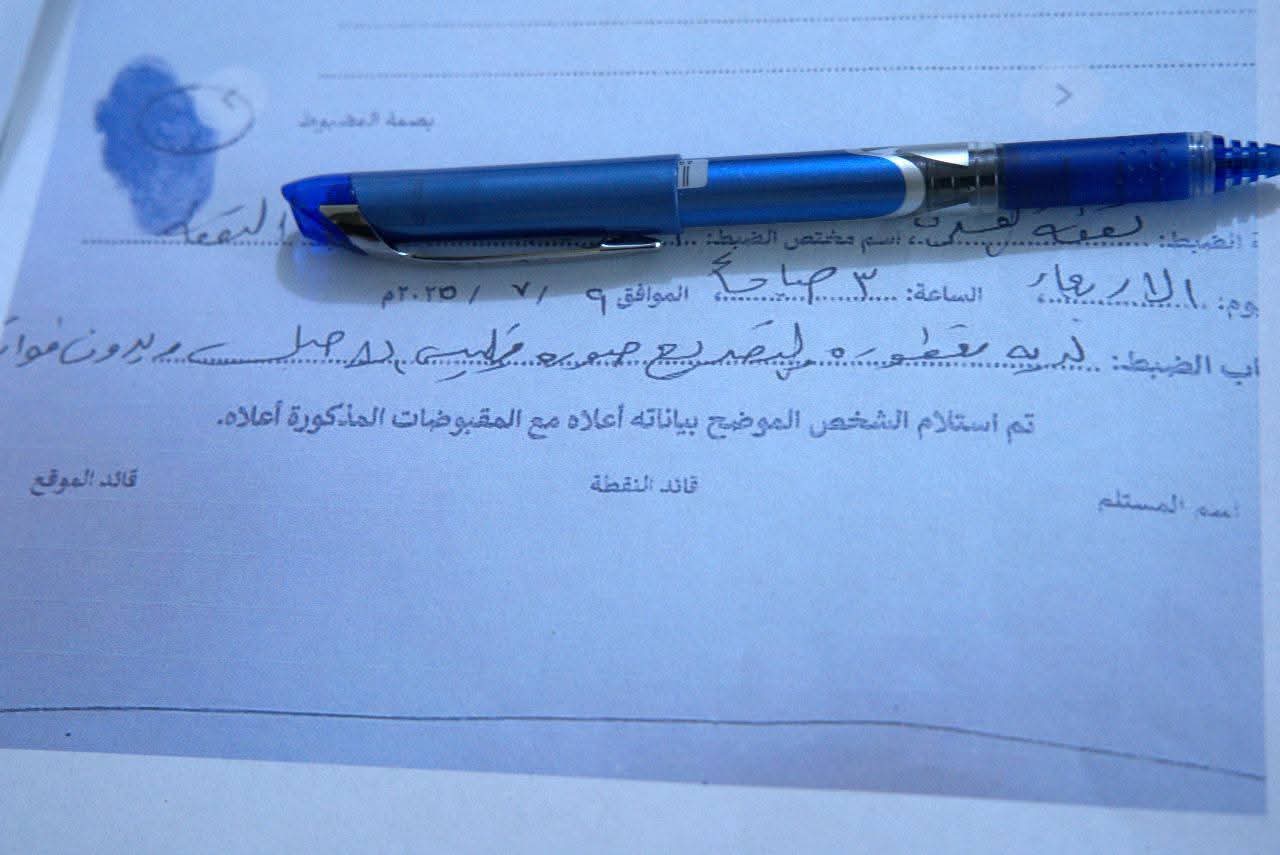 بصمة المضبوط
الضبط: نقطة اسم مختص الضبط: النقطة
يوم: الاربعاء الساعة: ٣ صباحاً الموافق ٩ / ٧ / ٢٠٢٥م
اب الضبط: لديه مقطوره صوره وليس الاصل وبدون
تم استلام الشخص الموضح بياناته أعلاه مع المقبوضات المذكورة أعلاه.
اسم المستلم قائد النقطة قائد الموقع